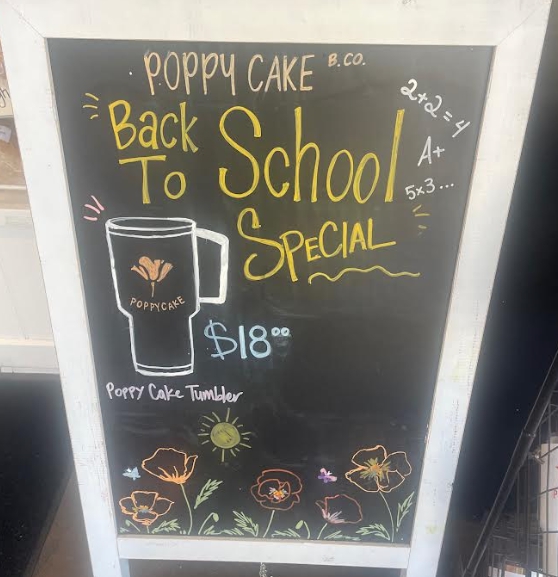 POPPY CAKE B.CO.
Back To School Special
2+2=4
A+
5x3...
POPPYCAKE
$18.00
Poppy Cake Tumbler